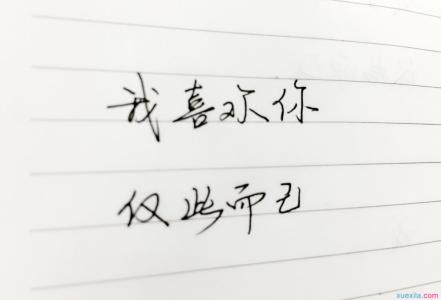 我喜欢你
仅此而已
xuexila.com